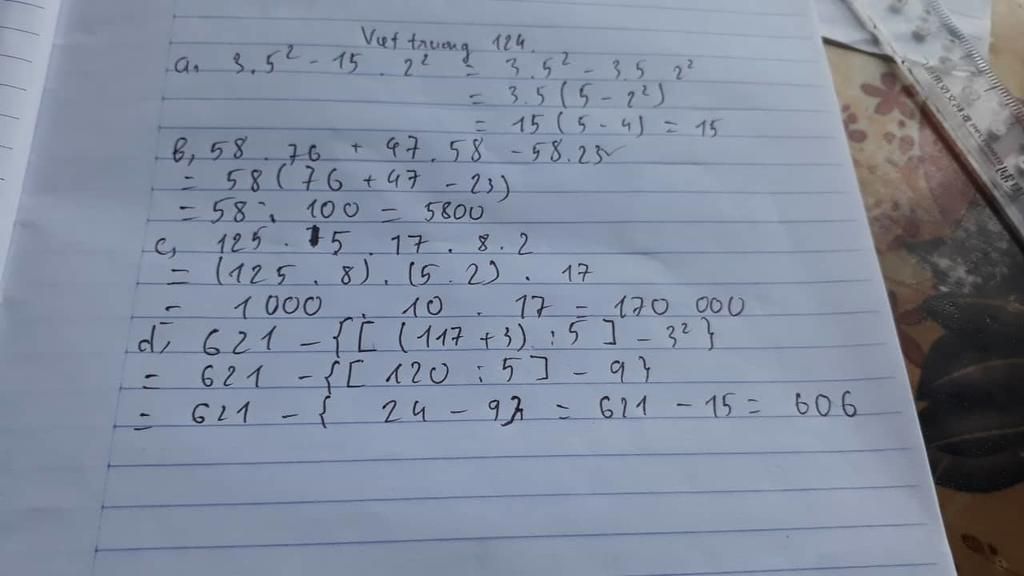 Việt trung 124.
a. 3.5² - 15 . 2² = 3.5² - 3.5 2²
= 3.5 (5 - 2²)
= 15 (5 - 4) = 15
b, 58 . 76 + 47 . 58 - 58.23
= 58 (76 + 47 - 23)
= 58 . 100 = 5800
c, 125 . 5 . 17 . 8 . 2
= (125 . 8) . (5 . 2) . 17
= 1000 . 10 . 17 = 170 000
d, 621 - {[ (117 + 3) : 5 ] - 3²}
= 621 - {[ 120 : 5 ] - 9}
= 621 - { 24 - 9} = 621 - 15 = 606